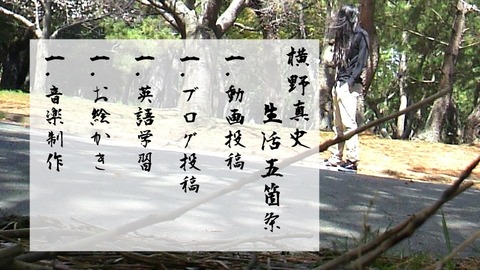 横野真史
生活五箇条
一．動画投稿
一．ブログ投稿
一．英語学習
一．お絵かき
一．音楽制作